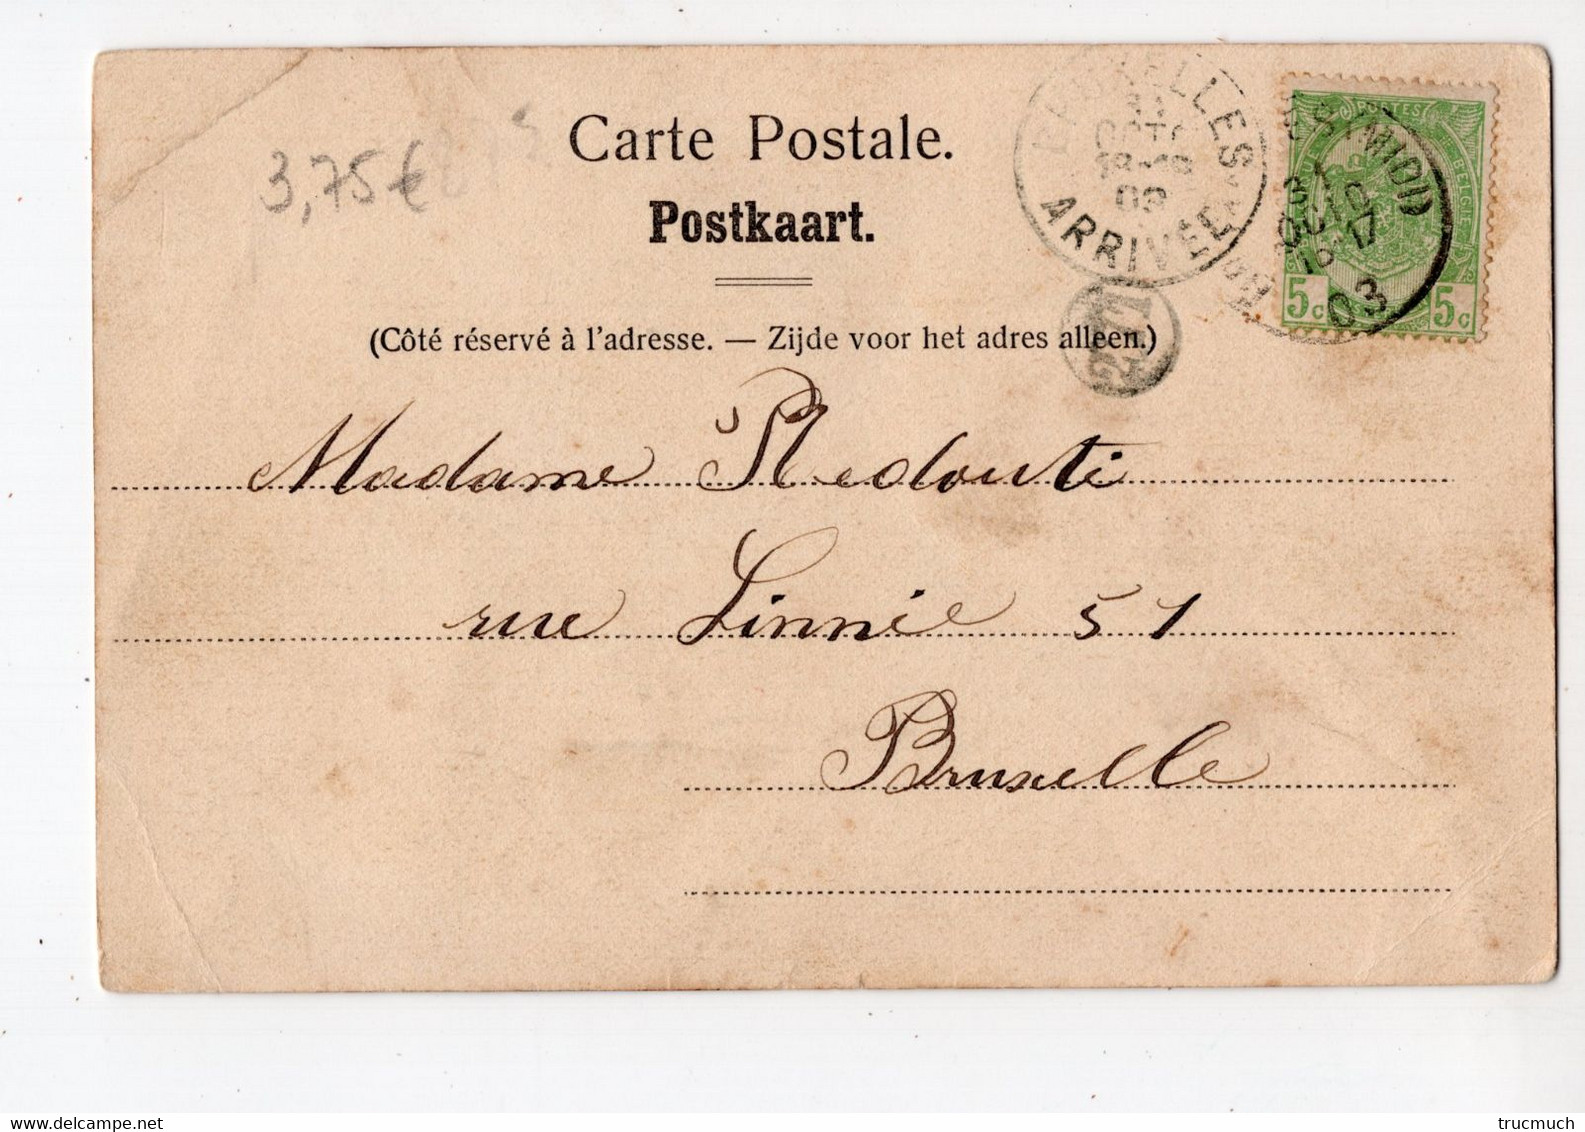 Carte Postale.
Postkaart.
3,75€
(Côté réservé à l'adresse. — Zijde voor het adres alleen.)
BRUXELLES
OCTO
18-19
03
ARRIVÉE
(MIDI)
OCTO
16-17
03
POSTES
BELGIQUE
5c 5c
Madame Redouti
rue Linnie 51
Bruxelle
delcampe.net
trucmuch